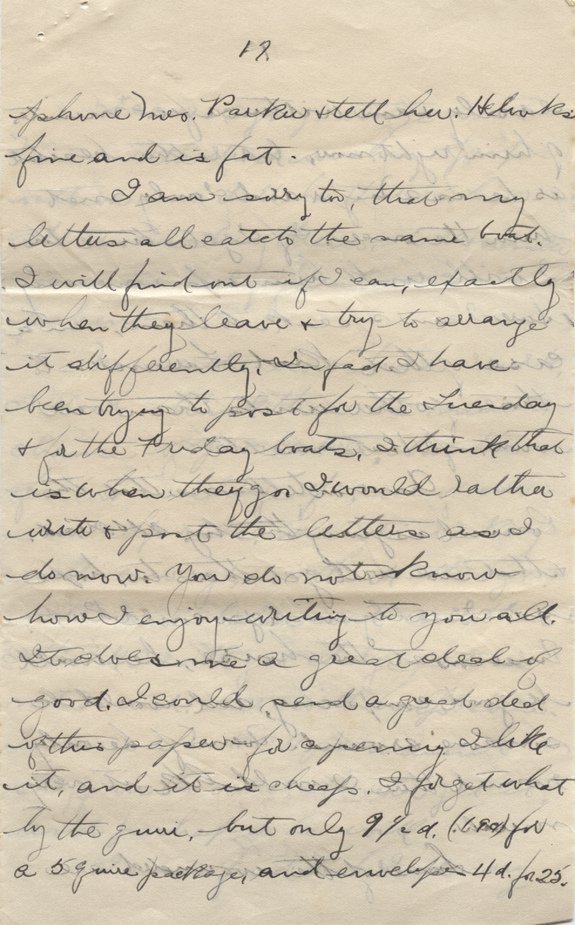 12
phone Mrs. Parker & tell her. He looks
fine and is fat.
I am sorry too that my
letters all catch the same boat.
I will find out if I can, exactly
when they leave & try to arrange
it differently. In fact I have
been trying to post for the Tuesday
& for the Friday boats, I think that
is when they go. I would rather
write & post the letters as I
do now. You do not know
how I enjoy writing to you all.
It does me a great deal of
good. I could send a great deal
of this paper for a penny. I like
it, and it is cheap. I forget what
by the quire, but only 9½ d. (19¢) for
a 5 quire package, and envelopes 4d. for 25.